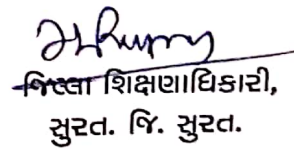 જિલ્લા શિક્ષણાધિકારી,
સુરત. જિ. સુરત.